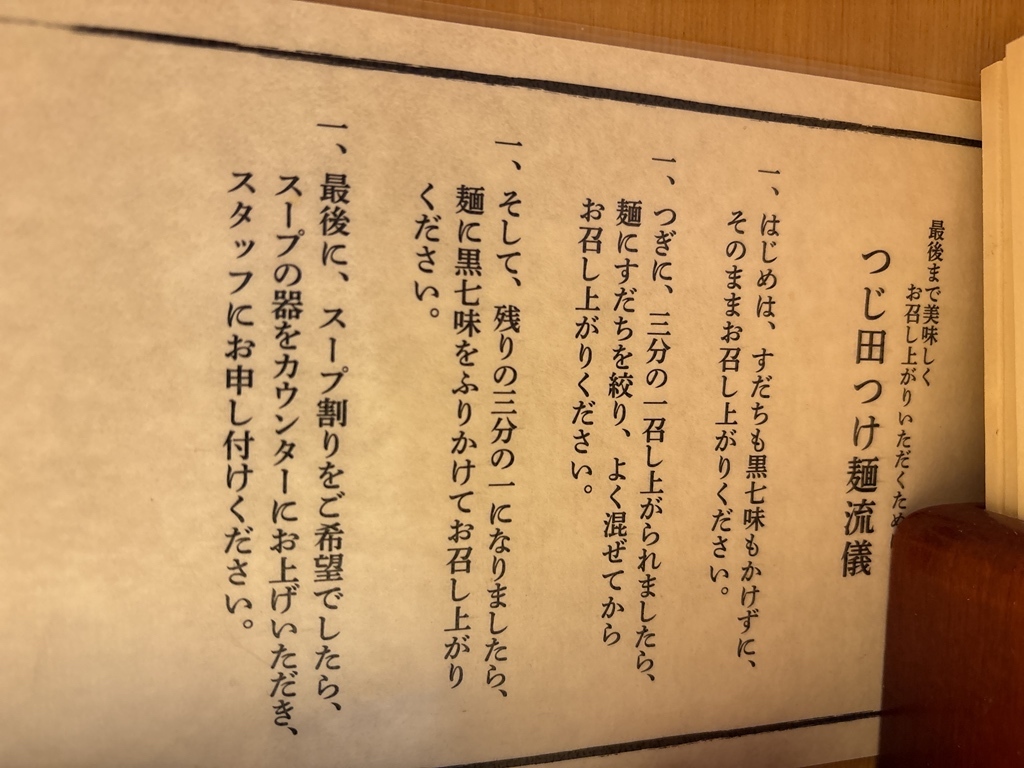 最後まで美味しく
お召し上がりいただくため
つじ田つけ麺流儀
一、はじめは、すだちも黒七味もかけずに、
そのままお召し上がりください。
一、つぎに、三分の一召し上がられましたら、
麺にすだちを絞り、よく混ぜてから
お召し上がりください。
一、そして、残りの三分の一になりましたら、
麺に黒七味をふりかけてお召し上がり
ください。
一、最後に、スープ割りをご希望でしたら、
スープの器をカウンターにお上げいただき、
スタッフにお申し付けください。